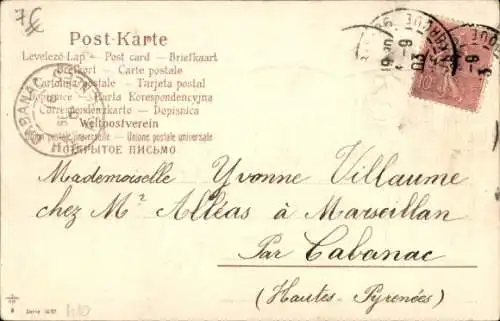 Post-Karte
Levelező-Lap — Post card — Briefkaart
Brefkort — Carte postale
Cartolina postale — Tarjeta postal
Dopisnice — Karta Korespondencyjna
Correspondenzkarte — Dopisnica
Weltpostverein
Union postale universelle — Unione postale universale
ОТКРЫТОЕ ПИСЬМО
CABANAC
Mademoiselle Yvonne Villaume
chez Mr Alléas à Marseillan
Par Cabanac
(Hautes-Pyrenées)